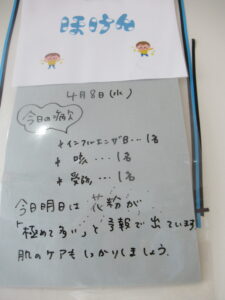 4月8日(水)
今日の病欠
*インフルエンザB…1名
*咳…1名
*発熱…1名
今日明日は花粉が
「極めて多い」と予報で出ています
肌のケアもしっかりしましょう.